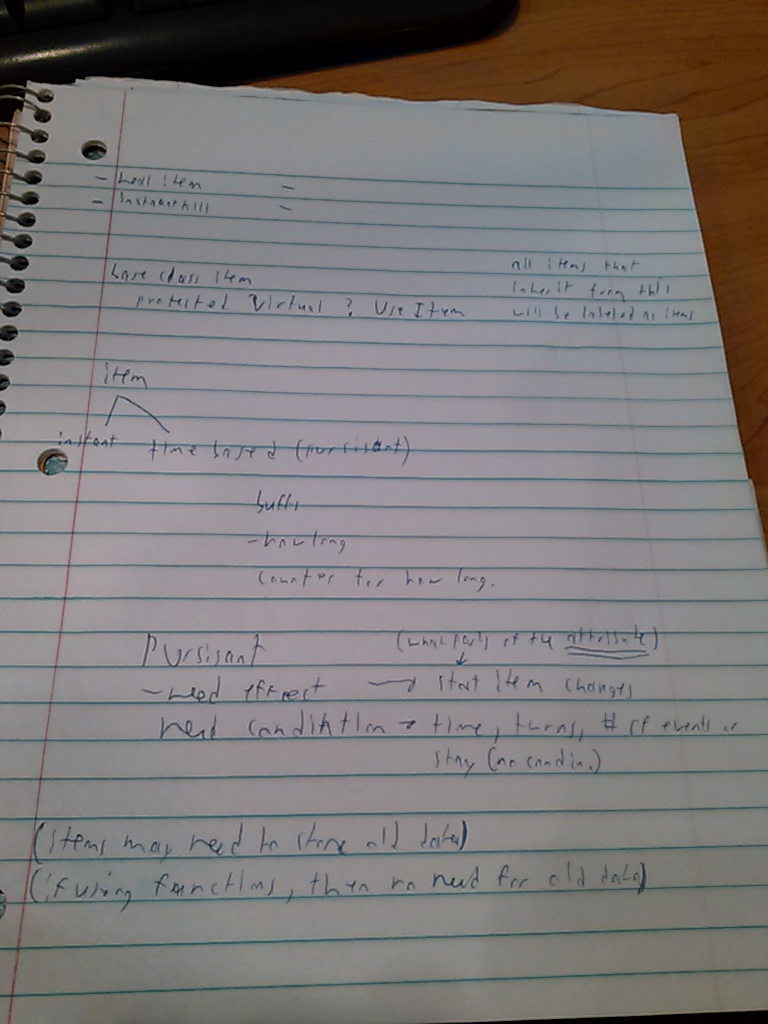 - heal item -
- Instant kill -
base class item
protected Virtual ? Use Item
all items that
inherit from this
will be labeled as items
item
instant time based (pursisant)
buffs
- how long
counter for how long.
Pursisant
(what parts of the attribute)
- need effect → start item changes
need condition → time, turns, # of events or
stay (no condin.)
(items may need to store old data)
(if using functions, then no need for old data)